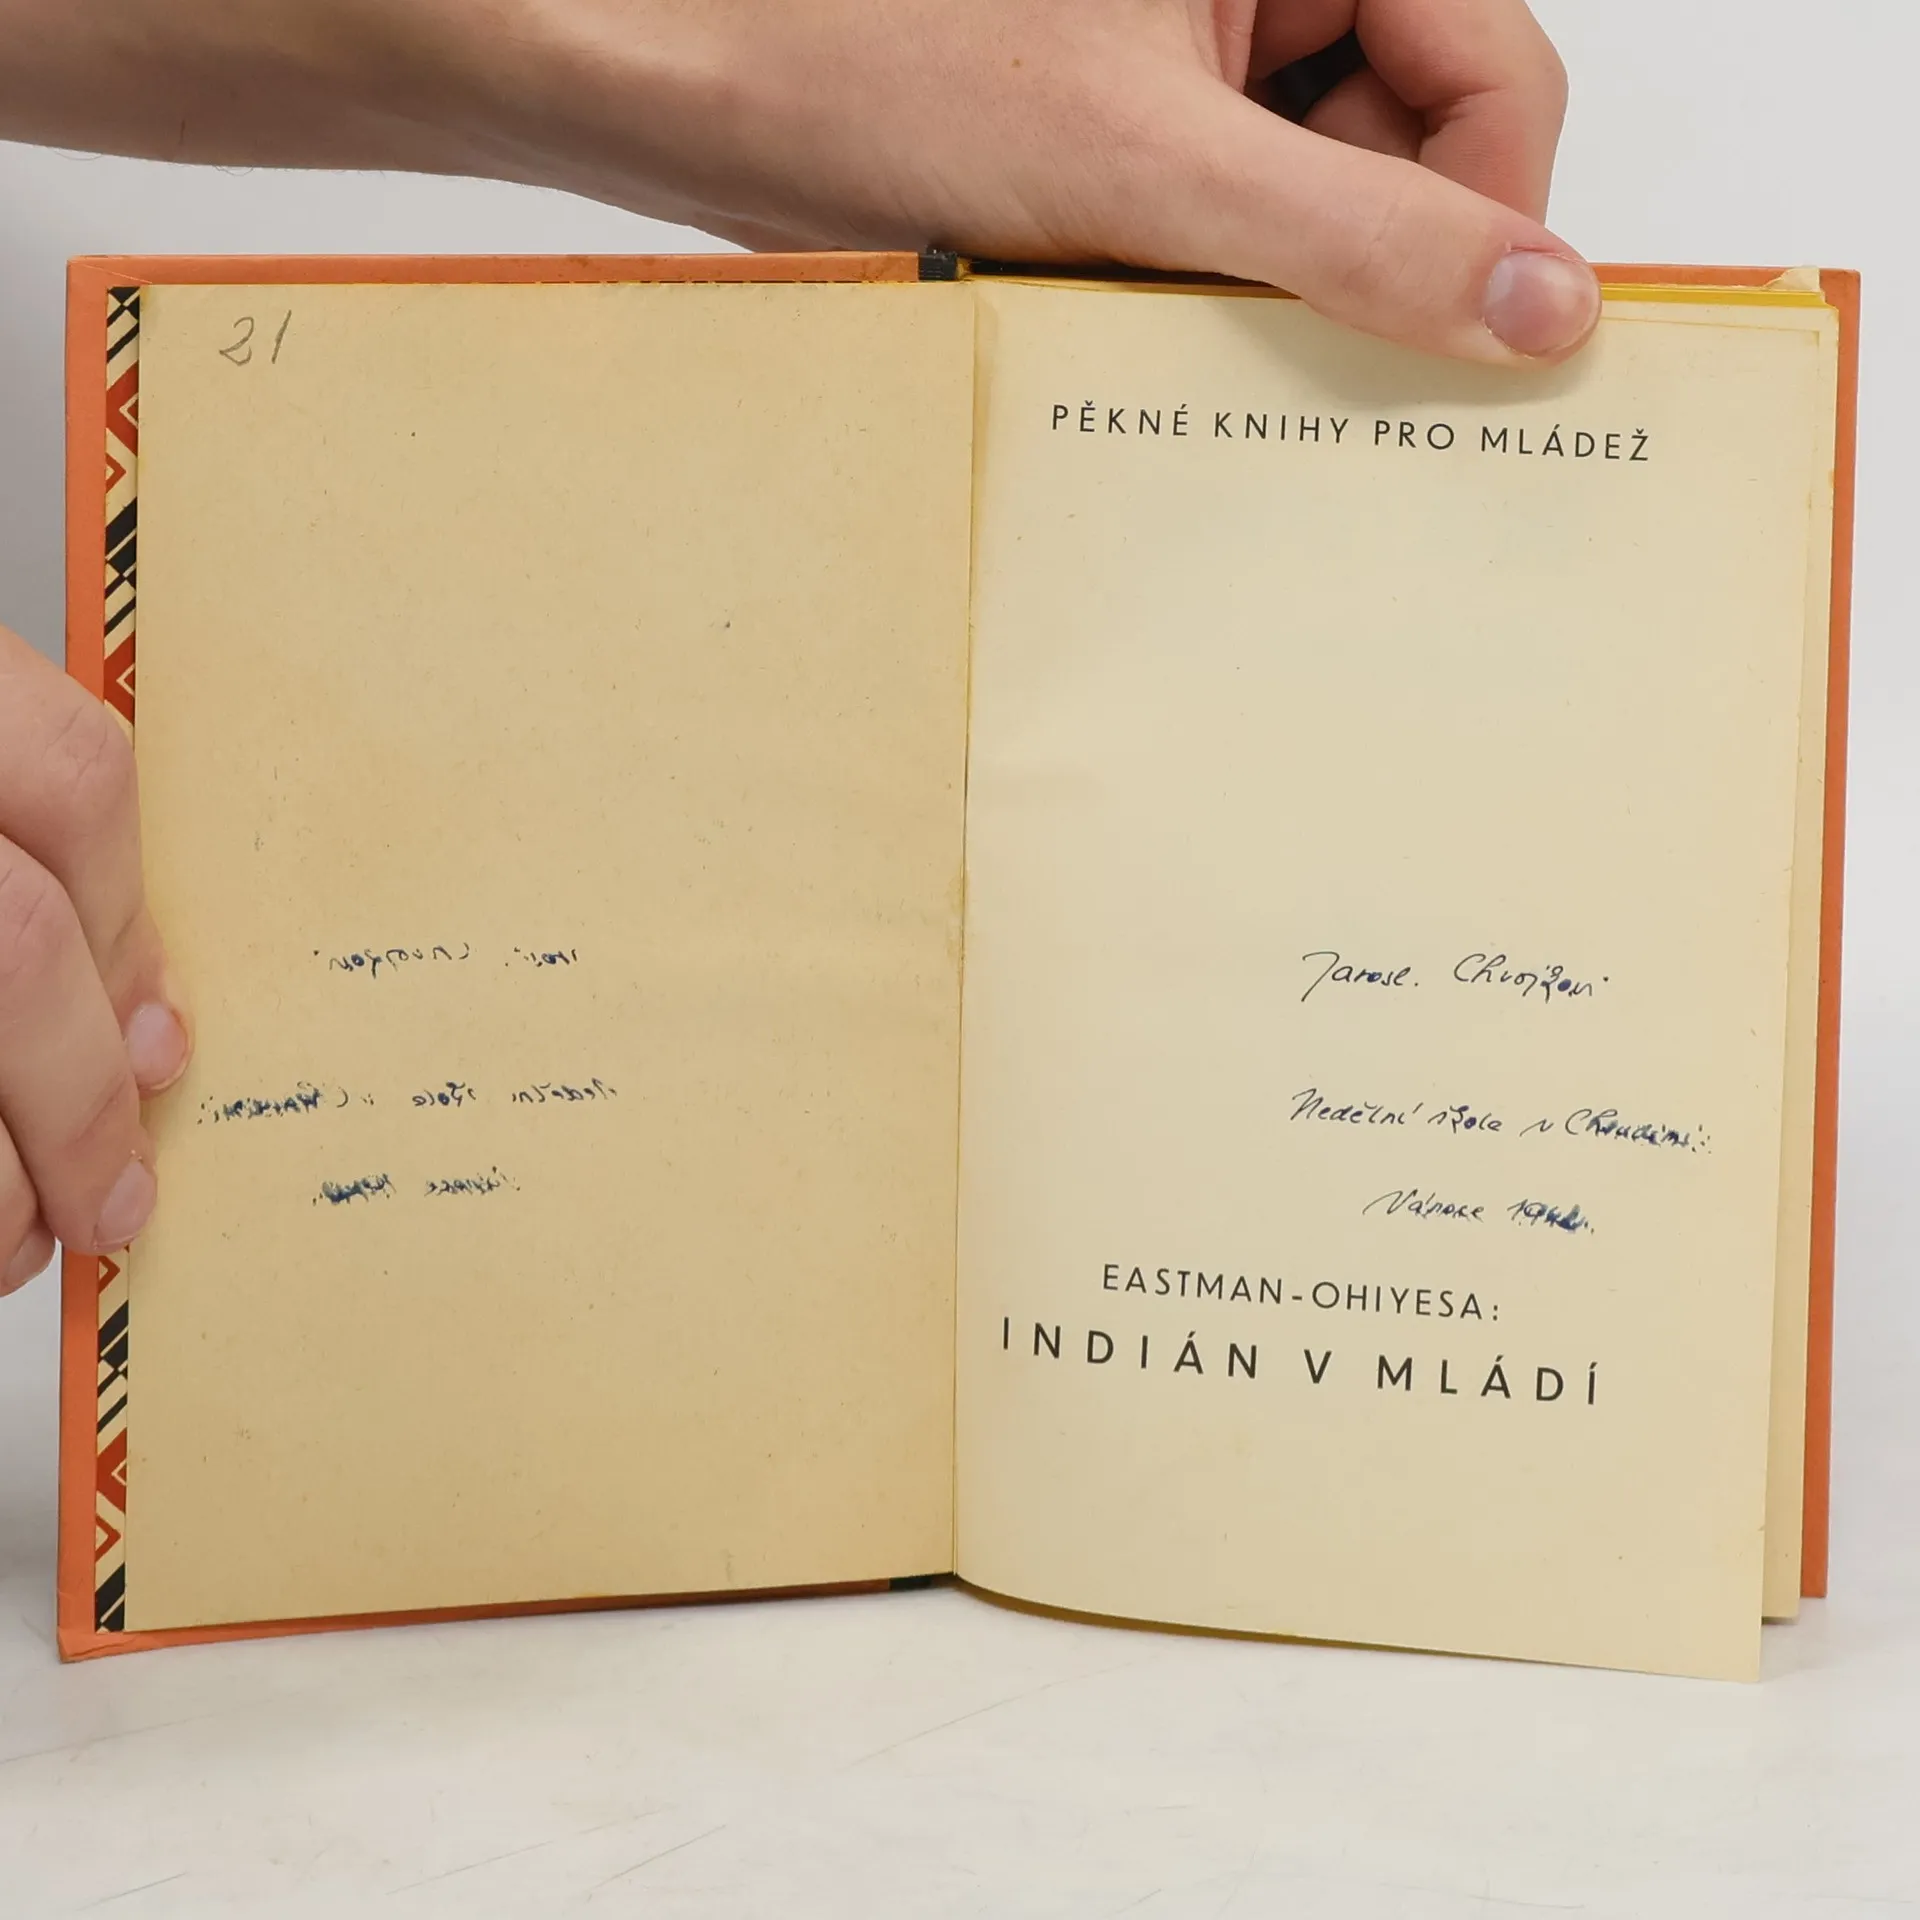 21
PĚKNÉ KNIHY PRO MLÁDEŽ
Jarosl. Chvojkovi
Nedělní škola v Chrudimi
Vánoce
EASTMAN-OHIYESA:
INDIÁN V MLÁDÍ